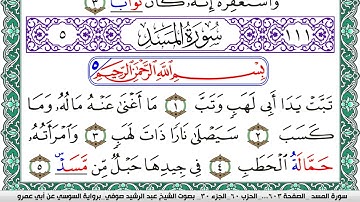 وَاسْتَغْفِرْهُ إِنَّهُ كَانَ تَوَّابًا ٣
١١١ سُورَةُ الْمَسَدِ ٥
بِسْمِ اللَّهِ الرَّحْمَٰنِ الرَّحِيمِ
تَبَّتْ يَدَا أَبِي لَهَبٍ وَتَبَّ ١ مَا أَغْنَىٰ عَنْهُ مَالُهُ وَمَا
كَسَبَ ٢ سَيَصْلَىٰ نَارًا ذَاتَ لَهَبٍ ٣ وَامْرَأَتُهُ
حَمَّالَةُ الْحَطَبِ ٤ فِي جِيدِهَا حَبْلٌ مِّن مَّسَدٍ ٥
سورة المسد _ الصفحة ٦٠٣ ... الحزب ٦٠ _الجزء ٣٠ _ بصوت الشيخ عبد الرشيد صوفي_ برواية السوسي عن أبي عمرو